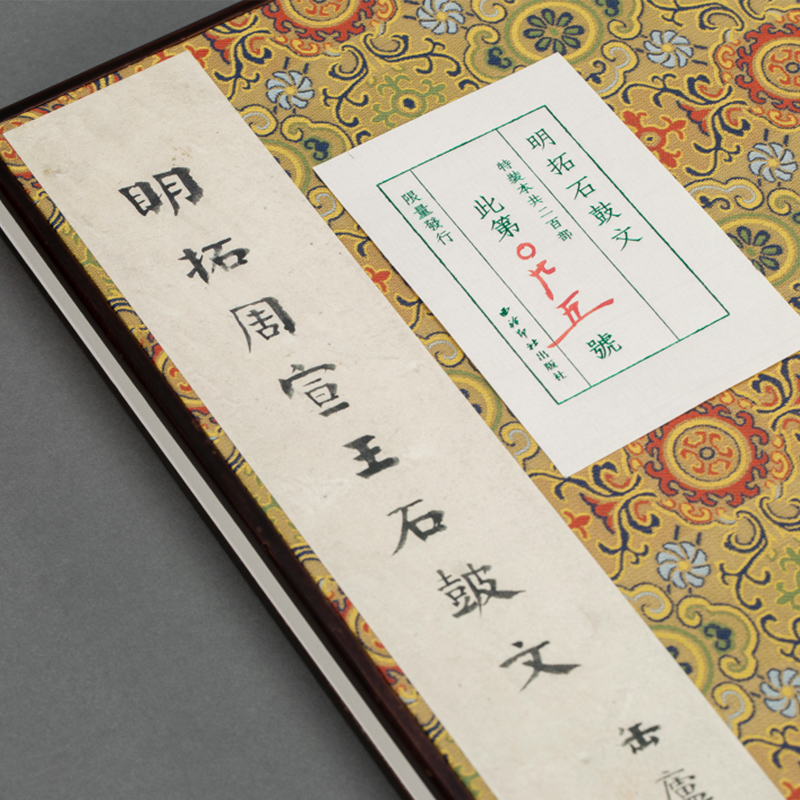 明拓石鼓文
特裝本共二百部
此第〇八五號
限量發行
西泠印社出版社
明拓周宣王石鼓文
缶廬